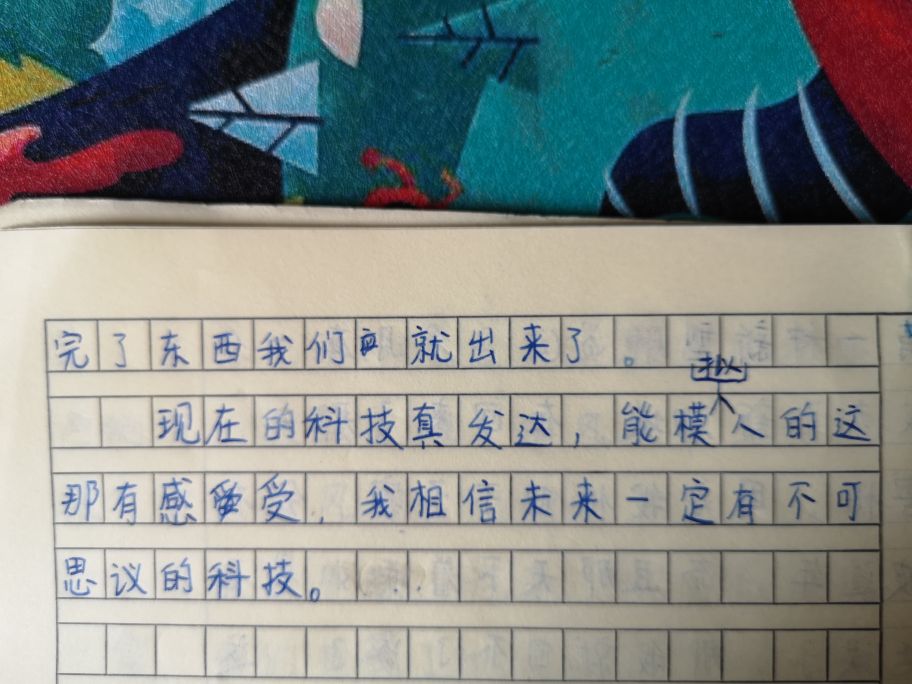 完了东西我们就出来了。
现在的科技真发达，能模拟人的这
那有感受，我相信未来一定有不可
思议的科技。